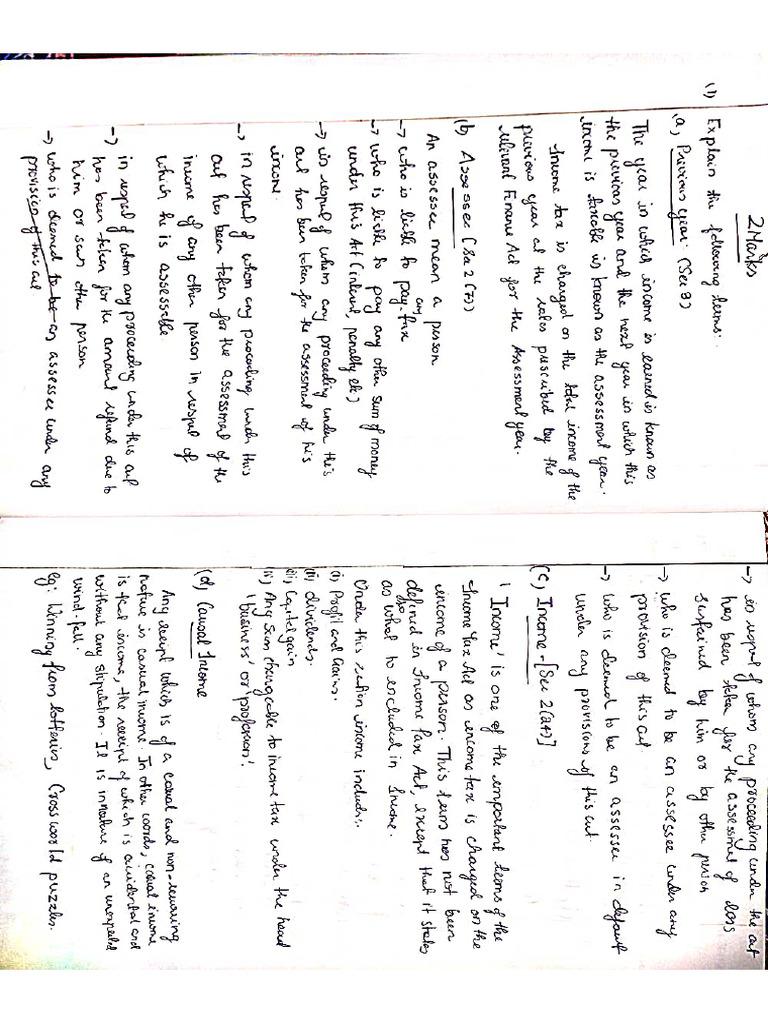 2 Marks
(1) Explain the following terms:
a, Previous year: (Sec 3)
The year in which income is earned is known as
the previous year and the next year in which this
income is taxable is known as the assessment year.
Income tax is charged on the total income of the
previous year at the rates prescribed by the
relevant Finance Act for the Assessment year.
(b) Assessee (Sec 2(7))
An assessee mean a person
→ who is liable to pay any tax
→ who is liable to pay any other sum of money
under this Act (interest, penalty etc)
→ in respect of whom any proceeding under this
act has been taken for the assessment of his
income.
→ in respect of whom any proceeding under this
act has been taken for the assessment of the
income of any other person in respect of
which he is assessable.
→ in respect of whom any proceeding under this act
has been taken for the amount refund due to
him or such other person
→ who is deemed to be an assessee under any
provision of this act
→ in respect of whom any proceeding under the act
has been taken for the assessment of loss
sustained by him or by other person
→ who is deemed to be an assessee under any
provision of this act
→ who is deemed to be an assessee in default
under any provisions of this act.
(c) Income - [Sec 2(24)]
'Income' is one of the important terms of the
Income Tax Act as income tax is charged on the
income of a person. This term has not been
defined in Income Tax Act, except that it states
as what to included in Income.
Under this section income includes:
(i) Profit and Gains.
(ii) dividends.
iii, Capital gain
(iv) Any sum chargeable to income tax under the head
'business' or 'profession'.
(d) Causal Income
Any receipt which is of a casual and non-recurring
nature is casual income. In other words, casual income
is that income, the receipt of which is accidental and
without any stipulation. It is in nature of an unexpected
wind-fall.
eg: Winning from lotteries, Cross world puzzles.